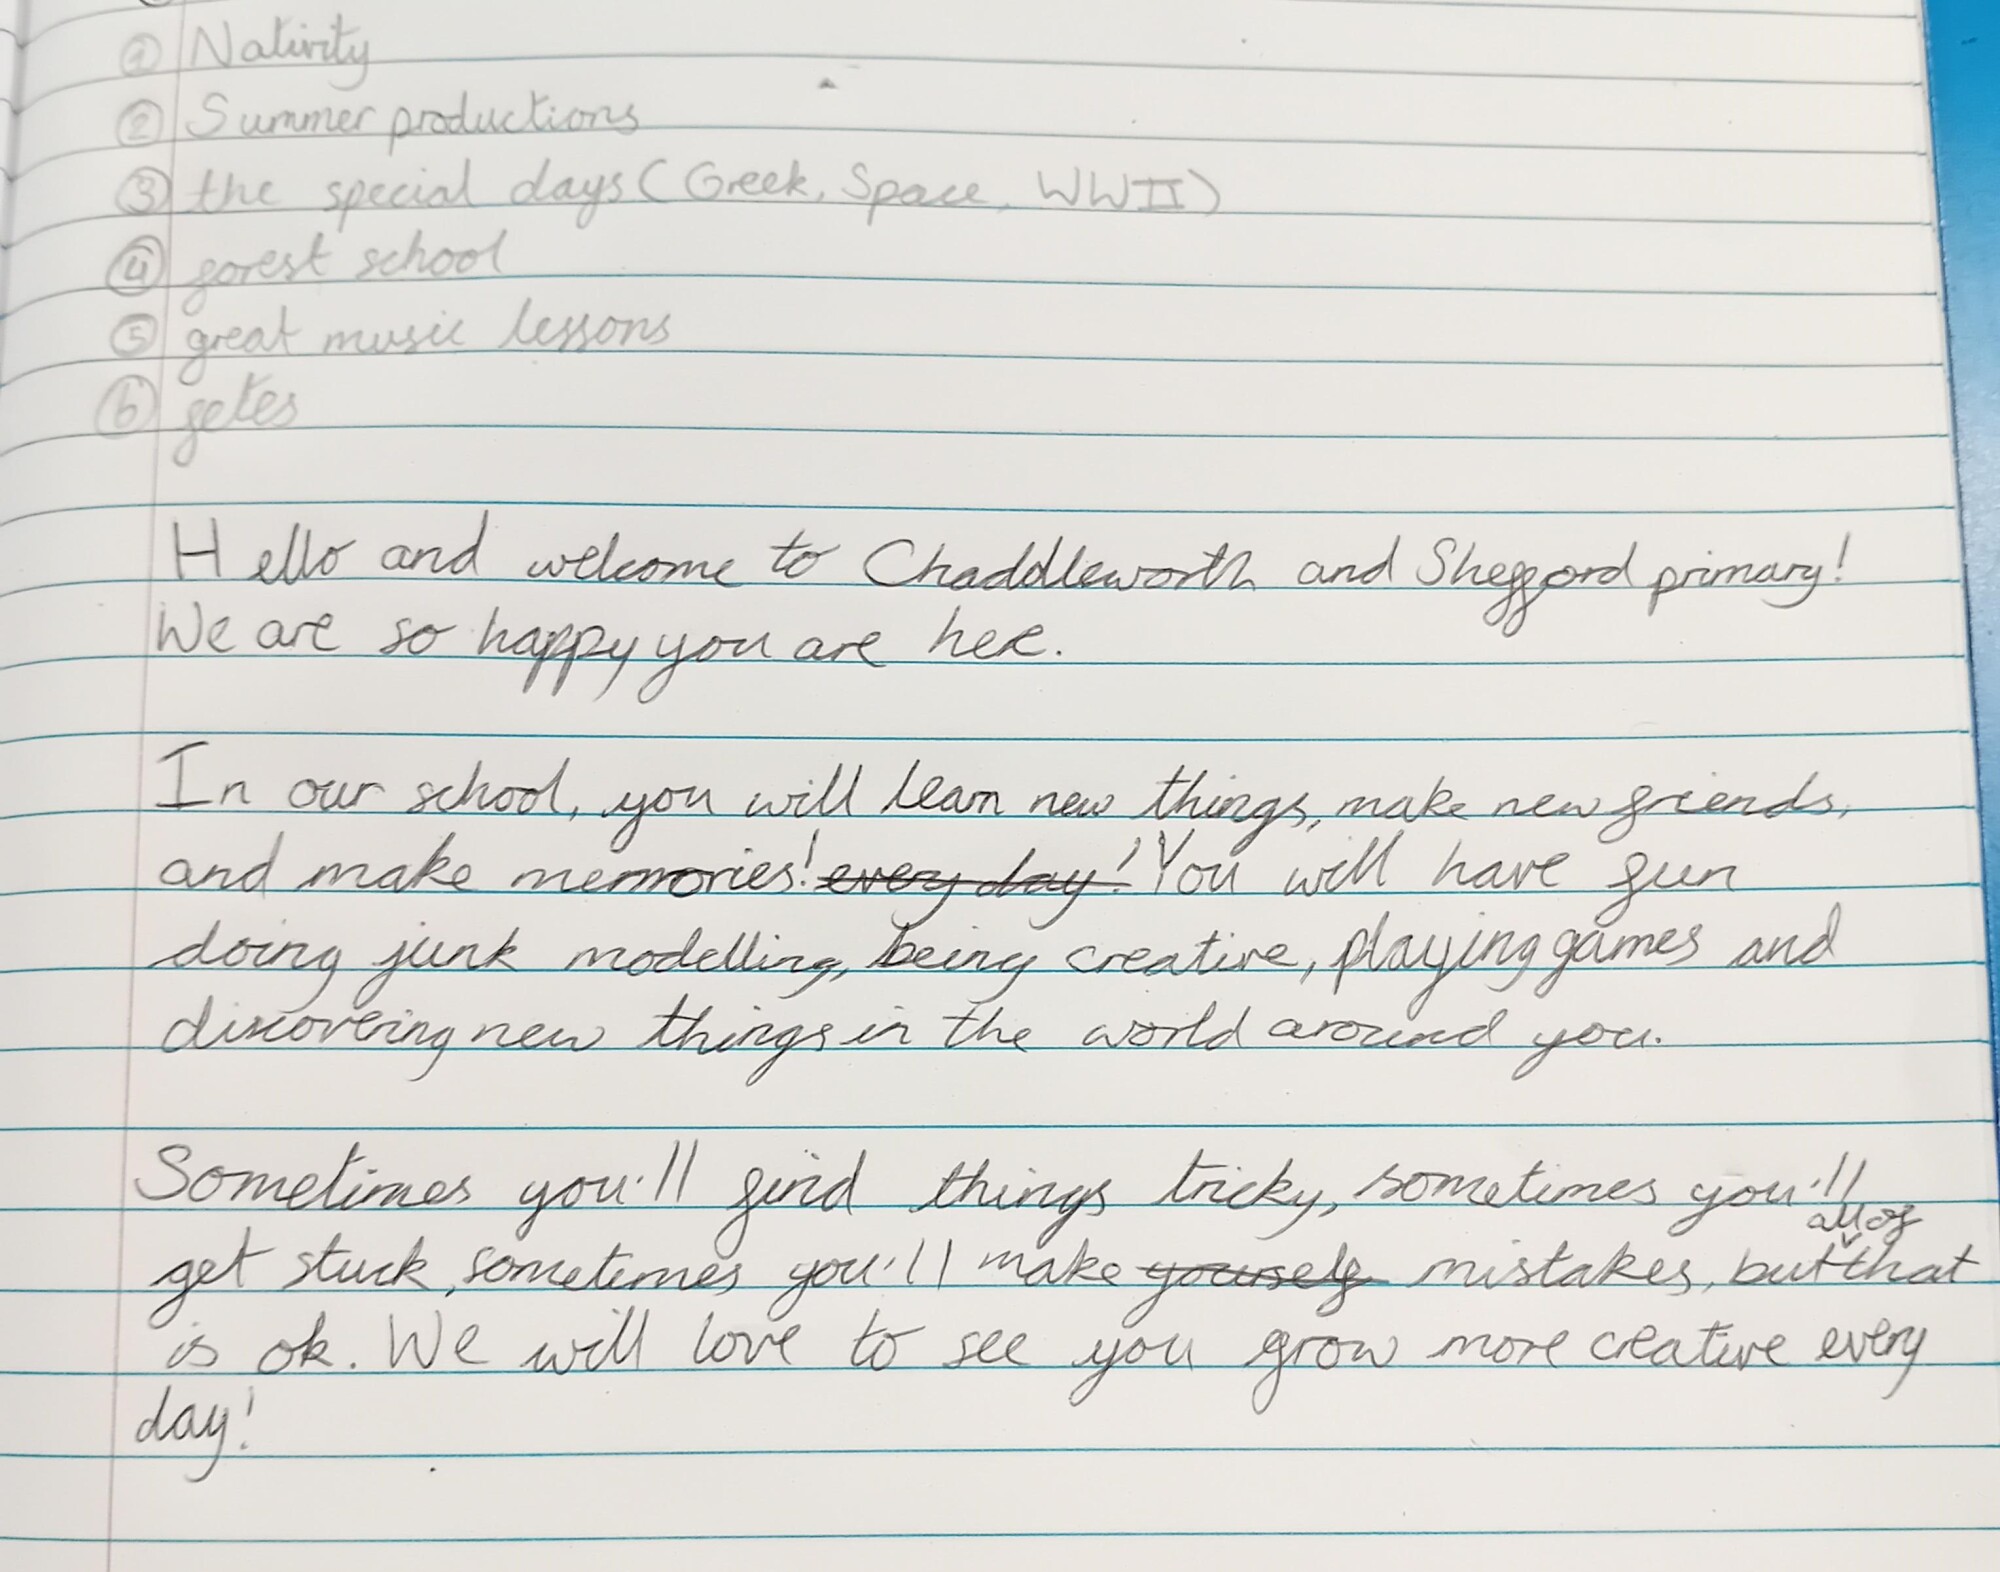 ① Nativity
② Summer productions
③ the special days (Greek, Space, WWII)
④ forest school
⑤ great music lessons
⑥ fetes
Hello and welcome to Chaddleworth and Shefford primary!
We are so happy you are here.
In our school, you will learn new things, make new friends,
and make memories! every day! You will have fun
doing junk modelling, being creative, playing games and
discovering new things in the world around you.
Sometimes you'll find things tricky, sometimes you'll
all of
get stuck, sometimes you'll make yourself mistakes, but that
is ok. We will love to see you grow more creative every
day!